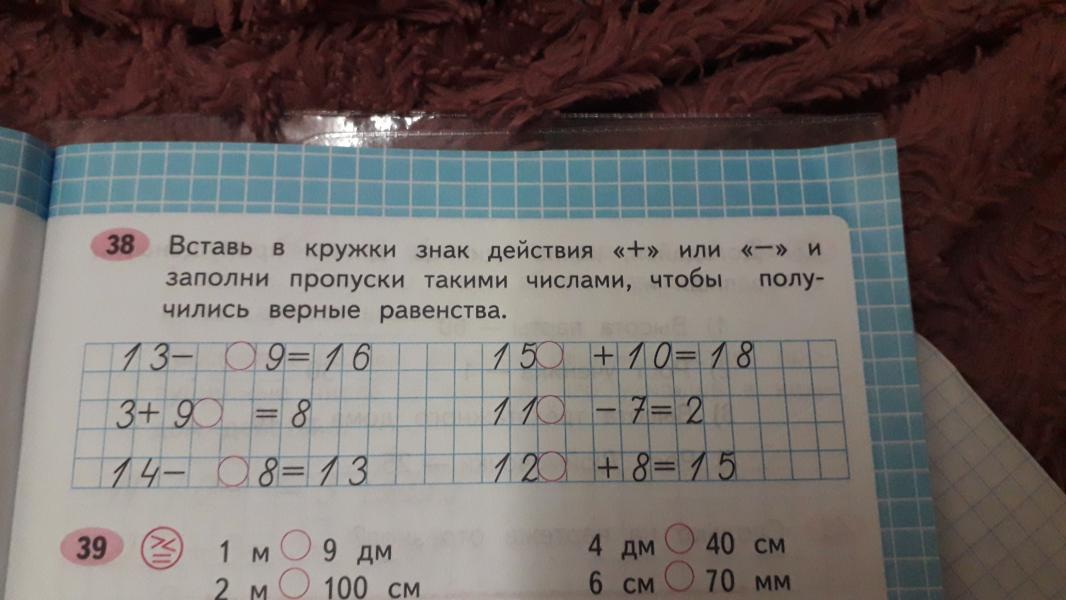 38 Вставь в кружки знак действия «+» или «−» и
заполни пропуски такими числами, чтобы полу-
чились верные равенства.
13− ○ 9=16 15○ +10=18
3+ 9○ =8 11○ −7=2
14− ○ 8=13 12○ +8=15
39 1 м ○ 9 дм 4 дм ○ 40 см
2 м ○ 100 см 6 см ○ 70 мм